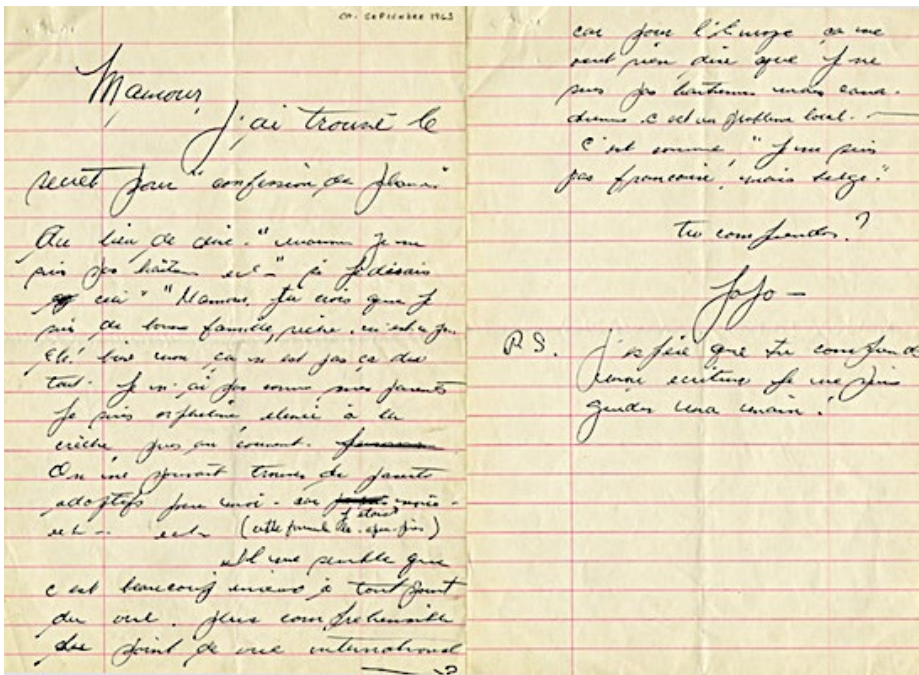 ca. SEPTEMBRE 1963
Mamour,
J'ai trouvé le
secret pour "confession de
Au lieu de dire. "mamour je ne
suis pas haïtien ect-" si je disais
ceci "Mamour, tu crois que je
suis de bonne famille, riche,
Eh! bien non, ça n'est pas ça du
tout. Je n'ai pas connu mes parents
Je suis orpheline élevée à la
crèche puis au couvent.
On ne pouvait trouver de parents
adoptifs pour moi - car j'étais
ect - ect (cette formule
Il me semble que
c est beaucoup mieux à tout point
de vue. plus compréhensible
du point de vue international
car pour l'Europe ça ne
veut rien dire que je ne
suis pas haitienne mais cana-
dienne. c est un problème local. —
C'est comme "je ne suis
pas francaise, mais belge."
tu comprendes?
JoJo —
P.S. J'espère que tu comprends
mon ecriture je ne puis
guider ma main!